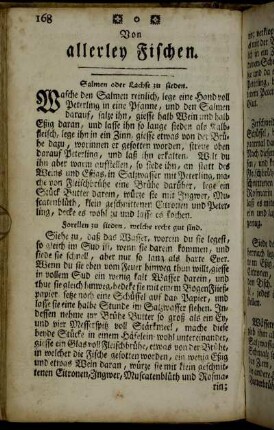 168
Von
allerley Fischen.
Salmen oder Lächse zu sieden.
Wasche den Salmen reinlich, lege eine Hand voll
Peterling in eine Pfanne, und den Salmen
darauf, salze ihn, giesse halb Wein und halb
Eßig daran, und lasse ihn so lange sieden als Kalb-
fleisch, lege ihn in ein Zinn, giesse etwas von der Brü-
he dazu, worinnen er gesotten worden, streue oben
darauf Peterling, und laß ihn erkalten. Wilt du
ihn aber warm aufstellen, so siede ihn, an statt des
Weins und Eßigs, in Salzwasser mit Peterling, ma-
che von Fleischbrühe eine Brühe darüber, lege ein
Stück Butter darein, würze sie mit Ingwer, Mu-
scatenblüth, klein geschnittenen Citronen und Peter-
ling, decke es wohl zu und lasse es kochen.
Forellen zu sieden, welche recht gut sind.
Siehe zu, daß das Wasser, worein du sie legest,
so gleich im Sud ist, wenn sie darein kommen, und
siede sie schnell, aber nur so lang als harte Eyer.
Wenn du sie eben vom Feuer hinweg thun willt, giesse
in vollem Sud ein wenig kalt Wasser darein, und
thue sie gleich hinweg, bedecke sie mit einem Bogen Fließ-
papier, setze noch eine Schüssel auf das Papier, und
lasse sie eine halbe Stunde im Salzwasser stehen. In-
dessen nehme zur Brühe Butter so groß als ein Ey,
und vier Messerspitz voll Stärkmeel, mache diese
beide Stücke in einem Häfelein wohl untereinander,
giesse ein Glas voll Fleischbrühe, etwas von der Brühe,
in welcher die Fische gesotten worden, ein wenig Eßig
und etwas Wein daran, würze sie mit klein geschnit-
tenen Citronen, Ingwer, Muscatenblüth und Rosma-
rin;